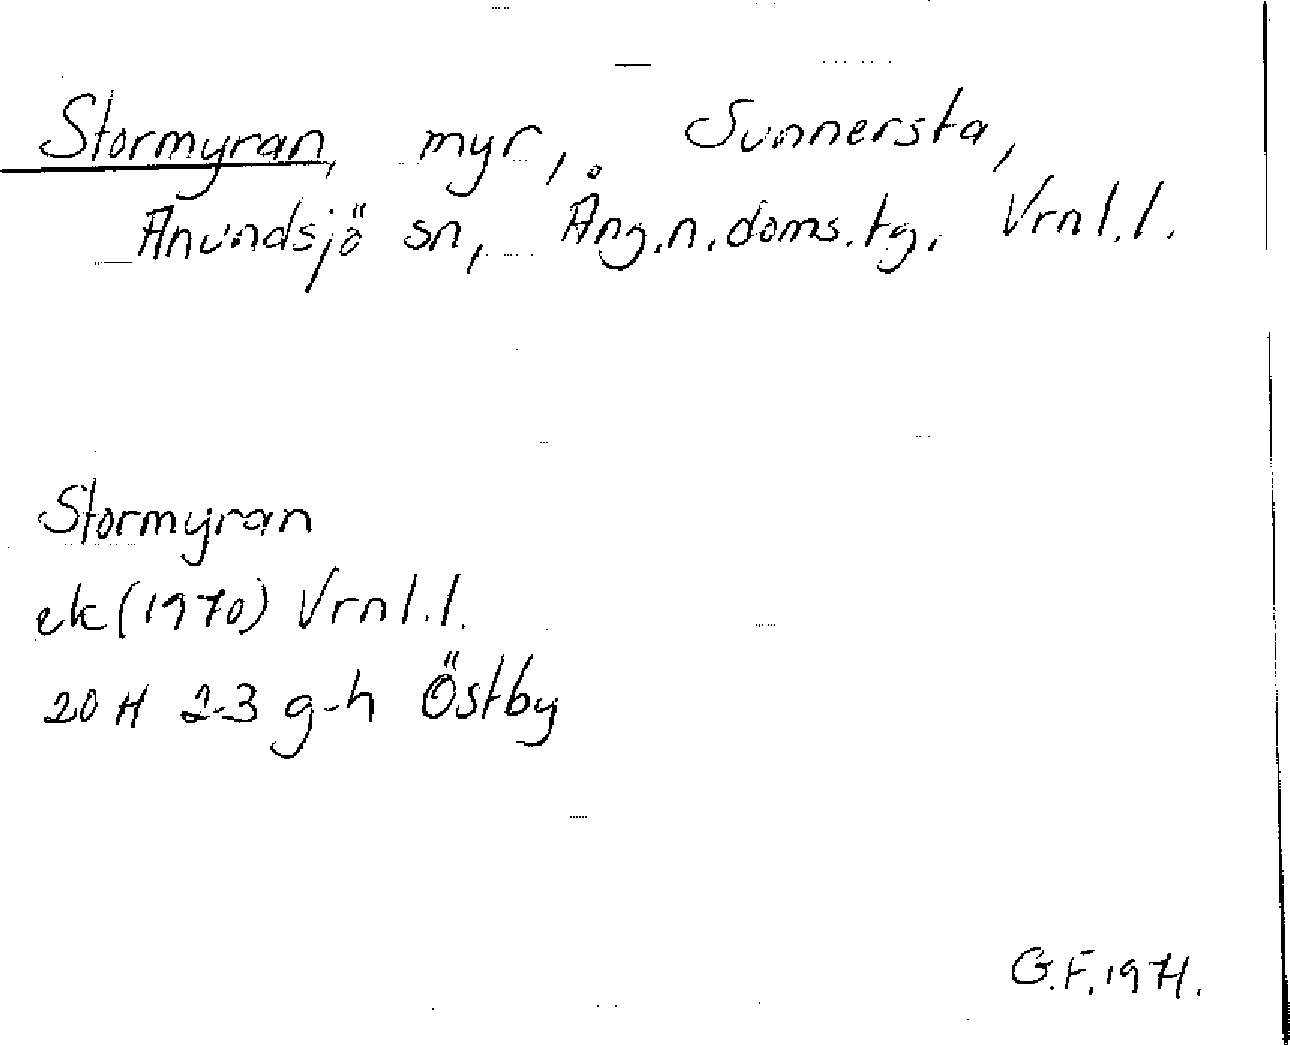 Stormyran, myr, Sunnersta,
Anundsjö sn, Ång.n.doms.tg. Vrnl.l.
Stormyran
ek (1970) Vrnl.l.
20 H 2-3 g-h Östby
G.F. 1971.